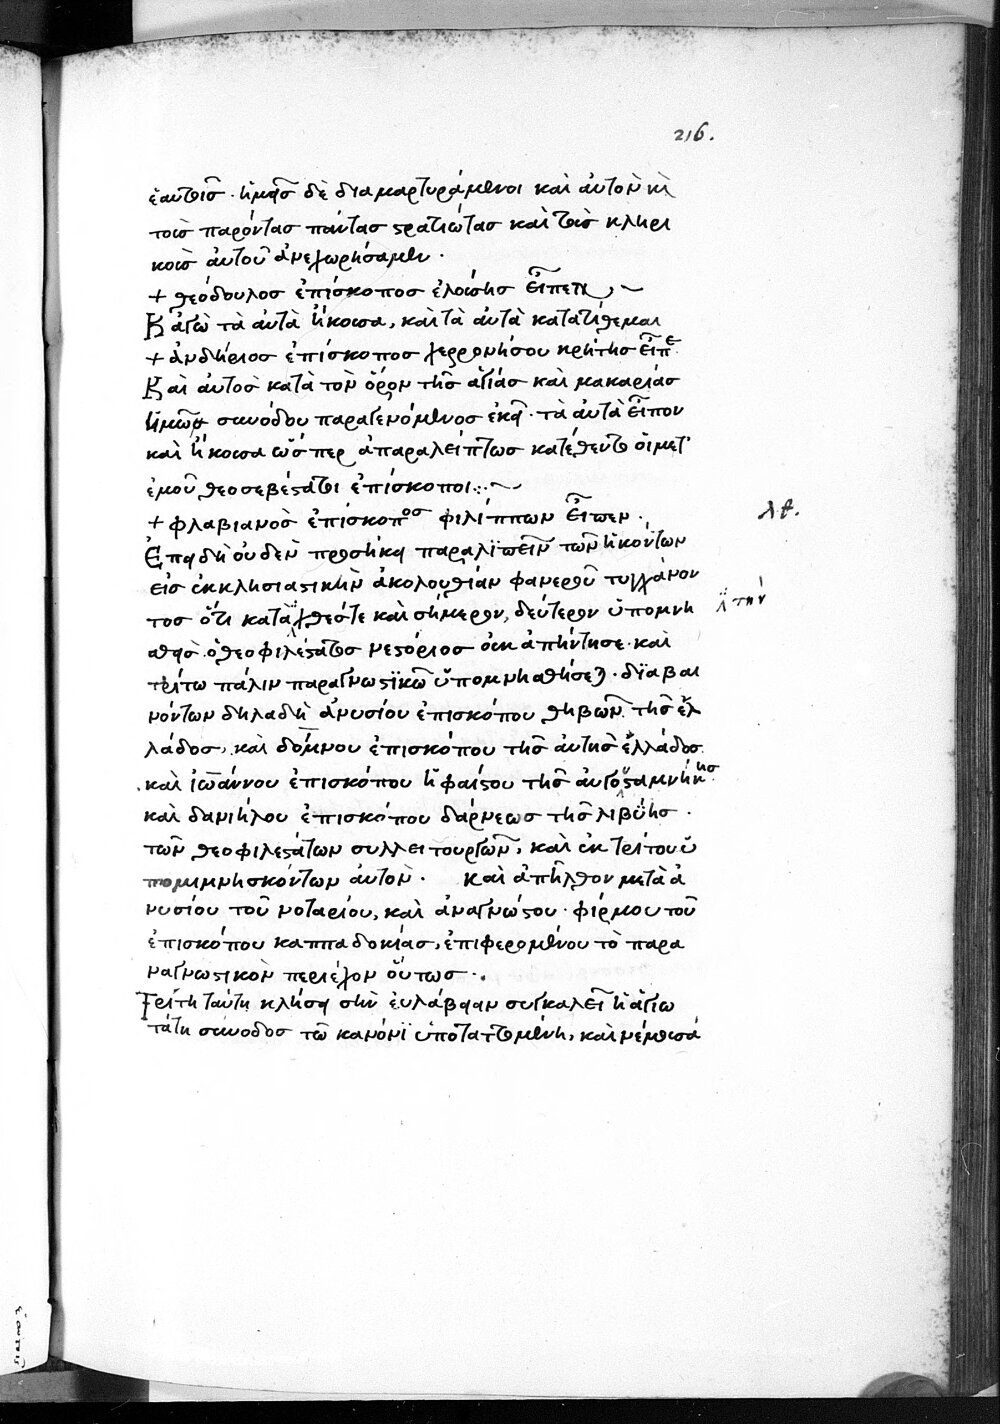 216.
ἑαυτοῖς. ἡμεῖς δὲ διαμαρτυράμενοι καὶ αὐτὸν κὶ
τοὺς παρόντας πάντας στρατιώτας καὶ τοῖς κληρι
κοῖς αὐτοῦ ἀνεχωρήσαμεν.
+ θεόδουλος ἐπίσκοπος ἐλούσης εἶπεν
Κἀγὼ τὰ αὐτὰ ἤκουσα, καὶ τὰ αὐτὰ κατατίθεμαι
+ ἀνδήριος ἐπίσκοπος χερρονήσου κρήτης εἶπε
Καὶ αὐτὸς κατὰ τὸν ὅρον τῆς ἁγίας καὶ μακαρίας
ἡμῶν συνόδου παραγενόμενος ἐκεῖ. τὰ αὐτὰ εἶπον
καὶ ἤκουσα ὥσπερ ἀπαραλείπτως κατέθεντο οἱ μετ'
ἐμοῦ θεοσεβέστατοι ἐπίσκοποι
+ φλαβιανὸς ἐπίσκοπος φιλίππων εἶπεν.
Ἐπειδὴ οὐδὲν προσήκει παραλϊπεῖν τῶν ἡκόντων
εἰς ἐκκλησιαστικὴν ἀκολουθίαν φανεροῦ τυγχάνον
τος ὅτι κατὰ χθὲς τε καὶ σήμερον, δεύτερον ὑπομνη
σθεὶς ὁ θεοφιλέστατος νεστόριος οὐκ ἀπήντησε καὶ
τρίτω πάλιν παραγνωστϊκῶ ὑπομνησθήσεται. δϊαβαι
νόντων δηλαδὴ ἀνυσίου ἐπισκόπου θηβῶν τῆς ἑλ
λάδος, καὶ δόμνου ἐπισκόπου τῆς αὐτῆς ἑλλάδος
καὶ ἰωάννου ἐπισκόπου ἡφαίστου τῆς αὐγουσταμνήκης
καὶ δανιήλου ἐπισκόπου δάρνεως τῆς λιβύης.
τῶν θεοφιλεστάτων συλλειτουργῶν, καὶ ἐκ τρίτου ὑ
πομιμνησκόντων αὐτὸν. καὶ ἀπῆλθον μετὰ ἀ
νυσίου τοῦ νοταρίου, καὶ ἀναγνώστου φίρμου τοῦ
ἐπισκόπου καππαδοκίας, ἐπιφερομένου τὸ παρα
ναγνωστικὸν περιέχον οὕτως.
Τρίτη ταύτη κλήσει σὴν εὐλάβειαν συγκαλεῖ ἡ ἁγίω
τάτη σύνοδος τῶ κανόνϊ ὑποταττομένη, καὶ νέμουσά
λθ.
τὴν